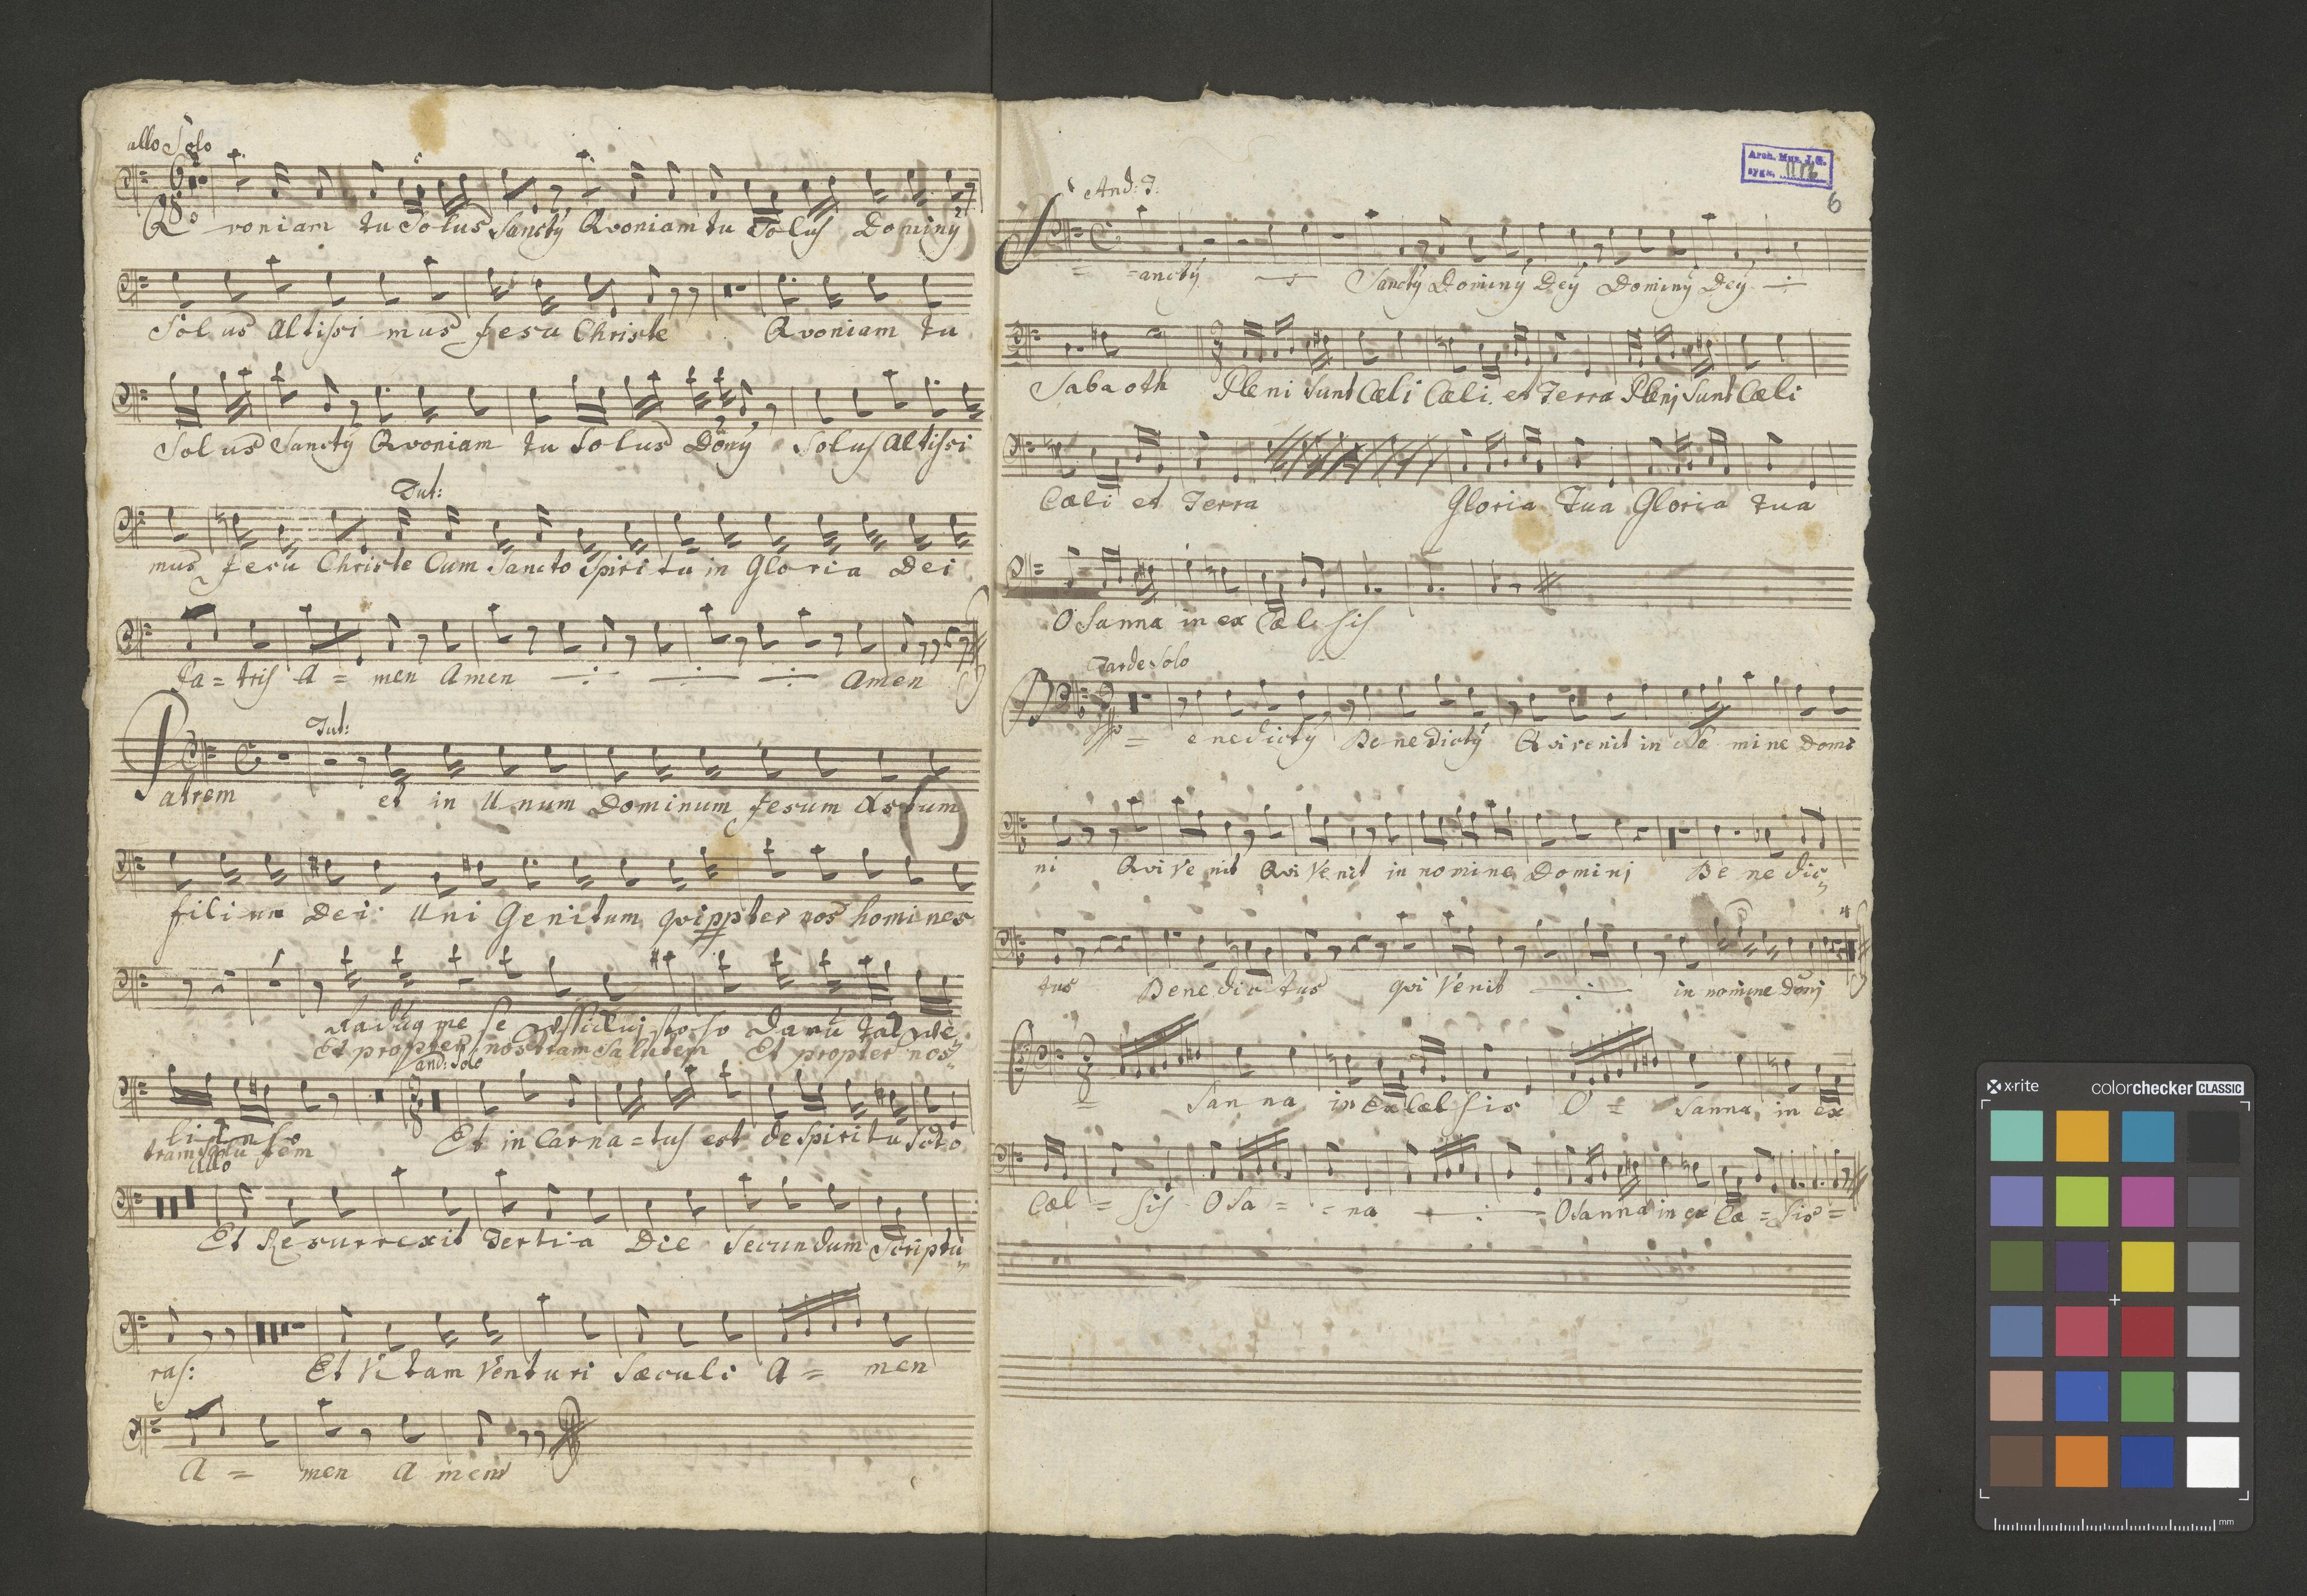 allo Solo
Qvoniam tu Solus Sanctÿ Qvoniam tu Soluſ Dominÿ
Solus Altiſsi mus Jesu Christe Qvoniam tu
Solus Sanctÿ Qvoniam tu Solus Dōnÿ Soluſ Altiſsi
Tut:
mus Jesu Christe Cum Sancto Spiritu in Gloria Dei
Pa = triſ A = men Amen Amen
Tut:
Patrem et in Unum Dominum Jesum Xstum
filium Dei Uni Genitum qvi ppter nos homines
Et propter nostram Salutem Et propter nos
and: Solo
tram Salu tem Et in Carna = tuſ est de Spiritu Scto
allo
Et Resurrexit Tertia Die Secundum Scriptu„
raſ: Et Vitam Venturi Sæculi A = men
A = men Amen
Arch. Muz. J.G.
sygn.
6
And: T:
S = anctÿ Sanctÿ Dominÿ Deÿ Dominÿ Deÿ
Sabaoth Pleni Sunt Cæli Cæli et Terra Plenj Sunt Cæli
Cæli et Terra Gloria Tua Gloria tua
OSanna in ex Cæl siſ
Tarde Solo
B = enedictÿ Benedictÿ Qvi venit in No mine Domi
ni Qvi Venit Qvi Venit in nomine Dominj Be ne dic„
tus Benedictus qvi Venit in nomine Dōnj
O = San na in Ex Cæl ſis O = Sanna in ex
Cæl = siſ OSa = = na OSanna in ex Cæ = ſis =
x-rite
colorchecker CLASSIC
mm